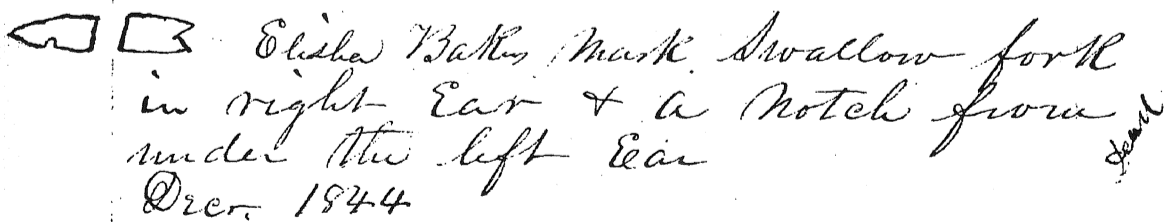 Elisha Bakers Mark. Swallow fork
in right Ear & a Notch from
under the left Ear
Decr. 1844